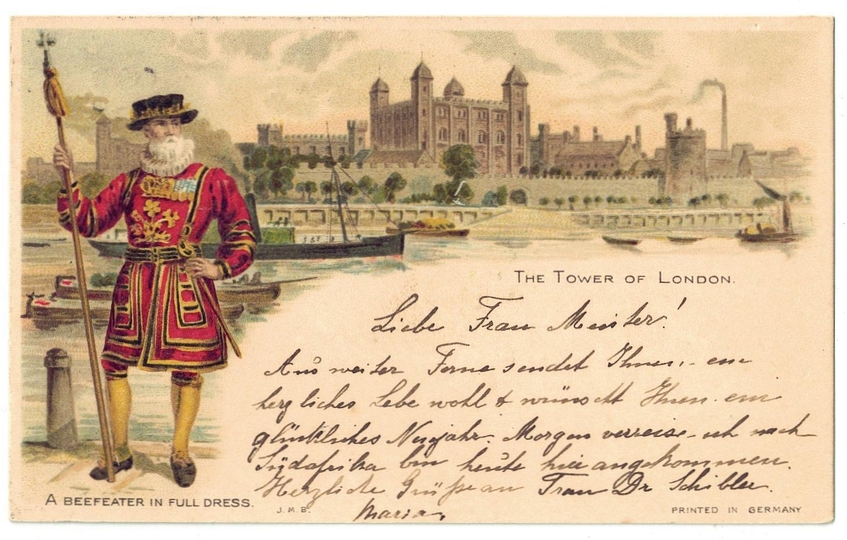 THE TOWER OF LONDON.
Liebe Frau Meister!
Aus weiter Ferne sendet Ihnen, ein
herzliches Lebe wohl & wünscht Ihnen ein
glückliches Neujahr. Morgen verreise ich nach
Südafrika bin heute hier angekommen.
Herzliche Grüße an Frau Dr Schibler.
Maria.
A BEEFEATER IN FULL DRESS.
J.M.B.
PRINTED IN GERMANY